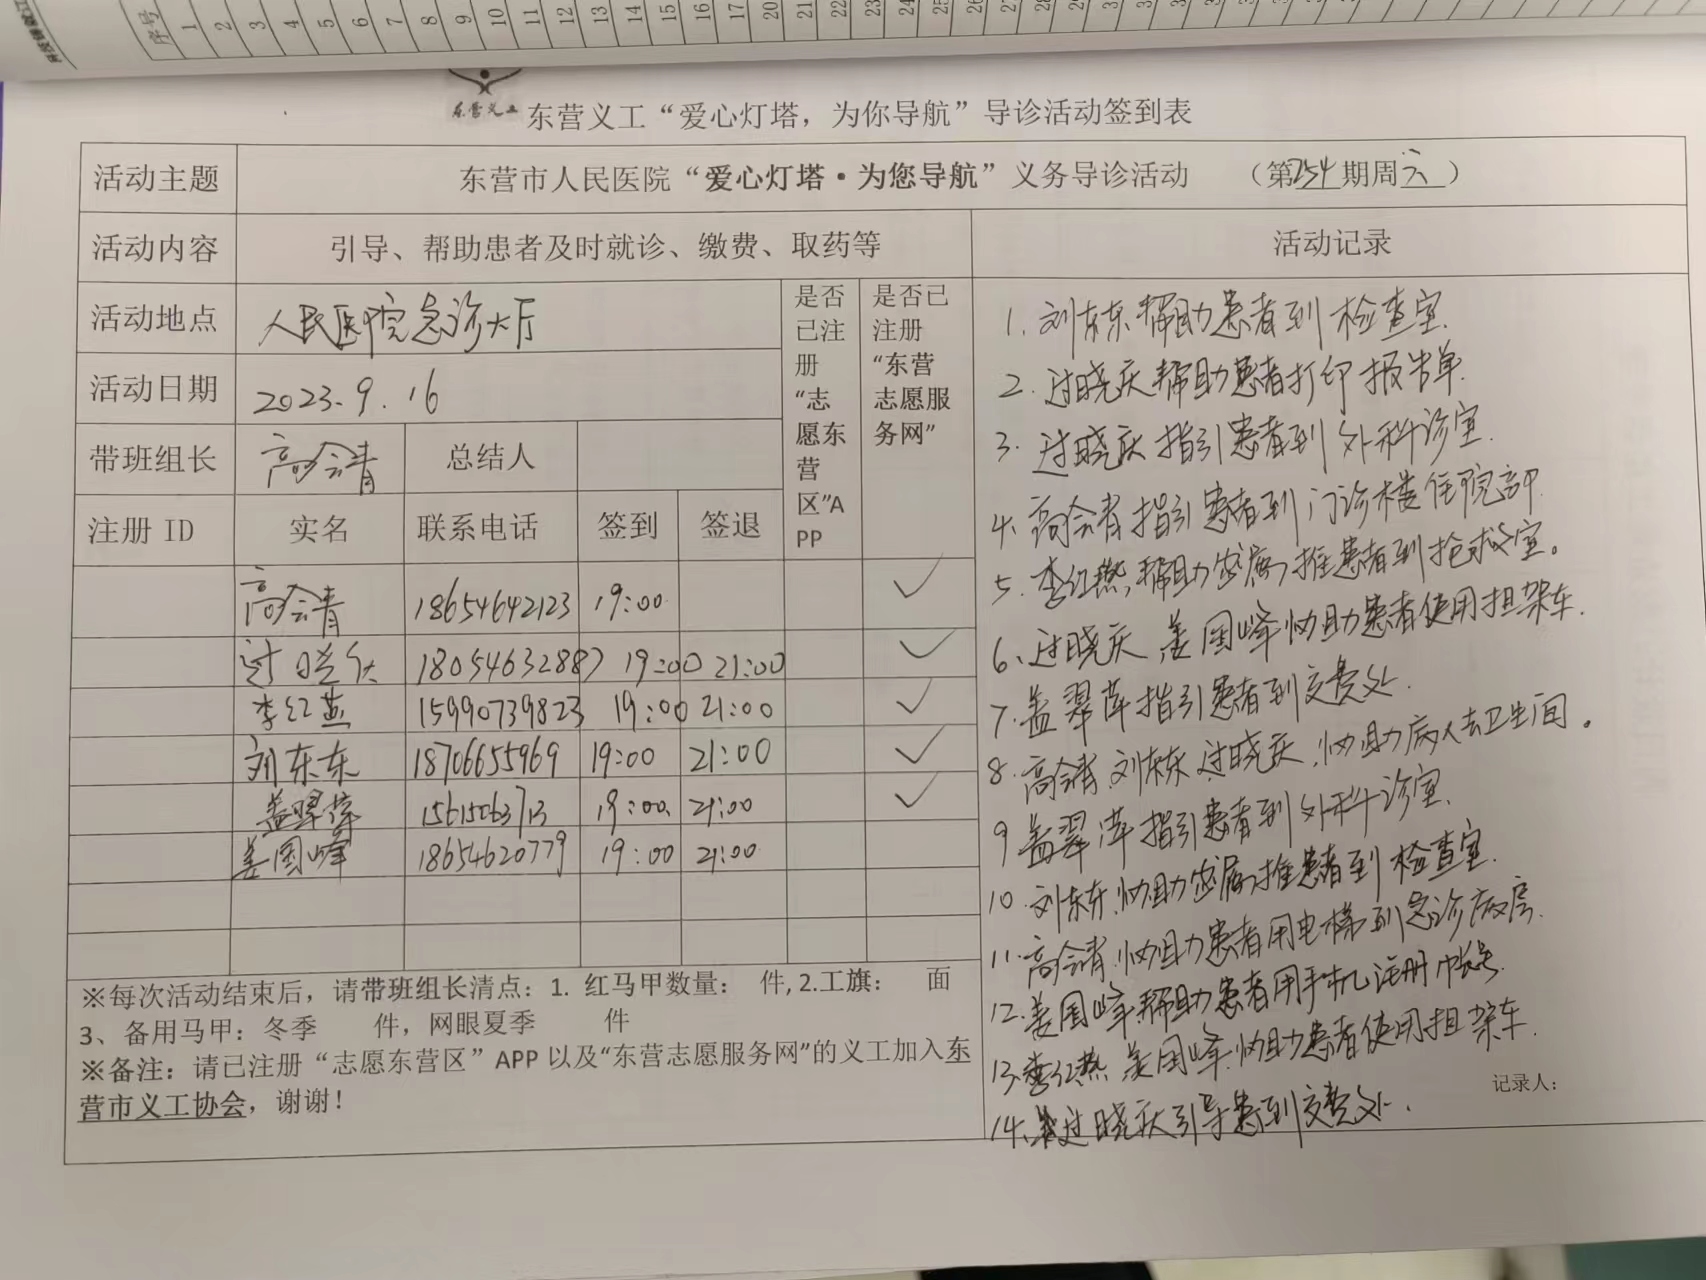 序号 1 2 3 4 5 6 7 8 9 10 11 12 13 14 15 16 17 20 21 22 23 24 25 26 27 28 29
东营义工
东营义工“爱心灯塔，为你导航”导诊活动签到表
活动主题 东营市人民医院“爱心灯塔·为您导航”义务导诊活动 （第254期周六）
活动内容 引导、帮助患者及时就诊、缴费、取药等 活动记录
活动地点 人民医院急诊大厅
活动日期 2023.9.16
带班组长 高会青 总结人
是否已注册“志愿东营区”APP
是否已注册“东营志愿服务网”
注册 ID 实名 联系电话 签到 签退
高会青 18654642123 19:00 ✓
过晓庆 18054632887 19:00 21:00 ✓
李红燕 15990739823 19:00 21:00 ✓
刘东东 18706655969 19:00 21:00 ✓
盖翠萍 15615063713 19:00 21:00 ✓
姜国峰 18654620779 19:00 21:00
※每次活动结束后，请带班组长清点：1. 红马甲数量： 件, 2.工旗： 面
3、备用马甲：冬季 件，网眼夏季 件
※备注：请已注册“志愿东营区”APP 以及“东营志愿服务网”的义工加入东
营市义工协会，谢谢！
1. 刘东东帮助患者到检查室.
2. 过晓庆帮助患者打印报告单.
3. 过晓庆指引患者到外科诊室.
4. 高会青指引患者到门诊楼住院部
5. 李红燕帮助家属推患者到抢救室。
6、过晓庆 姜国峰协助患者使用担架车.
7. 盖翠萍指引患者到交费处.
8. 高会青 刘东东 过晓庆.协助病人去卫生间。
9 盖翠萍指引患者到外科诊室.
10. 刘东东.协助家属推患者到检查室.
11. 高会青.协助患者用电梯到急诊病房.
12. 姜国峰.帮助患者用手机注册帐号.
13. 李红燕 姜国峰.协助患者使用担架车.
14. 过晓庆引导患到交费处.
记录人：